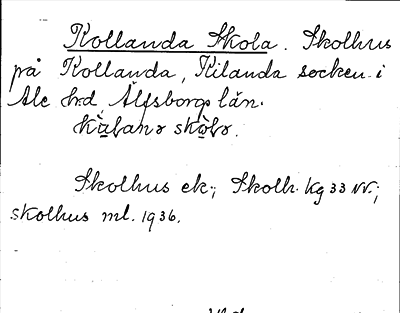 Kollanda Skola. Skolhus
på Kollanda, Kilanda socken i
Ale hd, Älfsborgs län.
Skolhus ek.; Skolh. Kg 33 NV.;
skolhus ml. 1936.